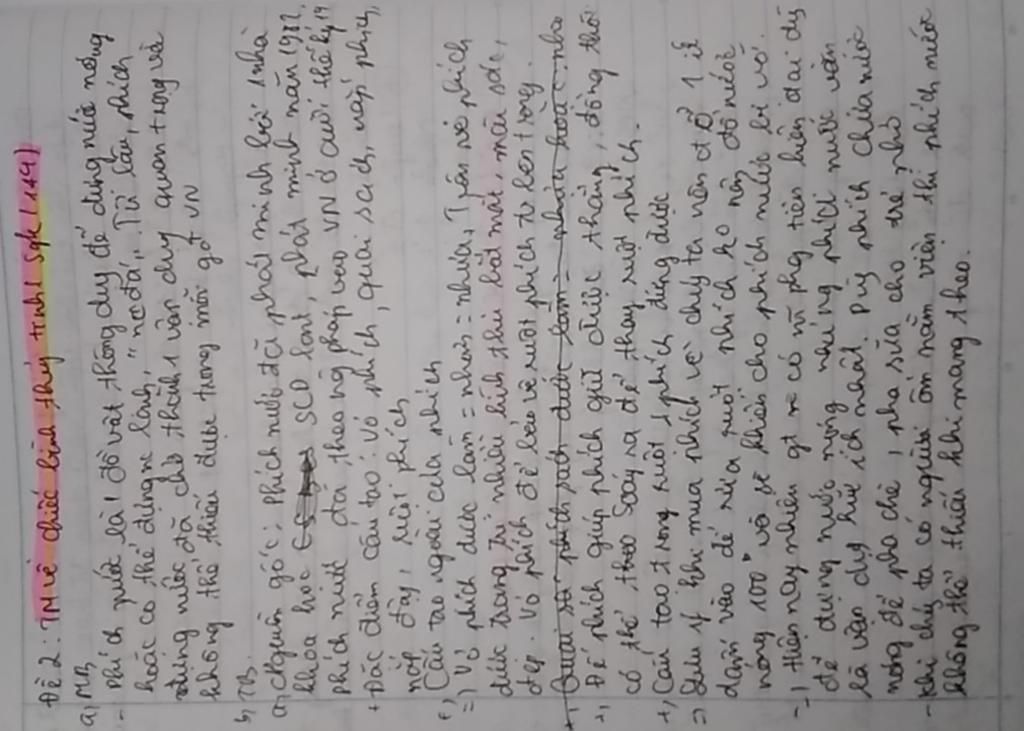 Đề 2: TM về chiếc bình thủy tinh (Sgk 144)
a) MB
- Phích nước là 1 đồ vật thông dụng để đựng nước nóng
hoặc có thể đựng nc lạnh, "nc đá". Từ lâu, phích
đựng nước đã trở thành 1 vận dụng quen trong và
không thể thiếu được trong mỗi gđ VN
b) TB.
a) Nguồn gốc: Phích nước đc phát minh bởi 1 nhà
khoa học SCD lant, phát minh năm 1982,
phích nước đã theo ng pháp vào VN ở cuối thế kỷ 19
+ Đặc điểm cấu tạo: vỏ phích, quai sách, nắp phích,
nắp đậy, ruột phích
c) Cấu tạo ngoài của phích
=) Vỏ phích được làm = nhôm = nhựa, Trên vỏ phích
được trang trí nhiều hình thù bắt mắt, màu sắc,
đẹp. Vỏ phích để bảo vệ ruột phích từ bên trong.
+, Quai sá phích sách được làm = nhựa hoặc nho
+, Đế phích giúp phích giữ được thẳng, đồng thời
có thể theo xoáy ra để thay ruột phích.
+, Cấu tạo trong ruột phích đựng được
=) Lưu ý khi mua phích về chúng ta nên đổ 1 ít
dấm vào để rửa ruột phích ko nên đổ nước
nóng 100° vào sẽ khiến cho phích nước bị vỡ.
- Hiện nay nhiều gđ có ~ ptg tiện hiện đại để
để đựng nước nóng nhưng phích nước vẫn
là vận dụng hữu ích nhất. Dùng phích chứa nước
nóng để pha chè, pha sữa cho trẻ nhỏ
- Khi chúng ta có người ốm nằm viện thì phích nước
không thể thiếu khi mang theo.